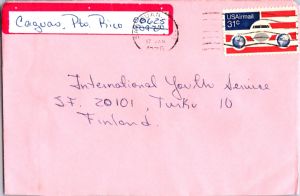 Caguas, Pto. Rico
00625
USAirmail
31c
International Youth Service
SF. 20101, Turku 10
Finland.